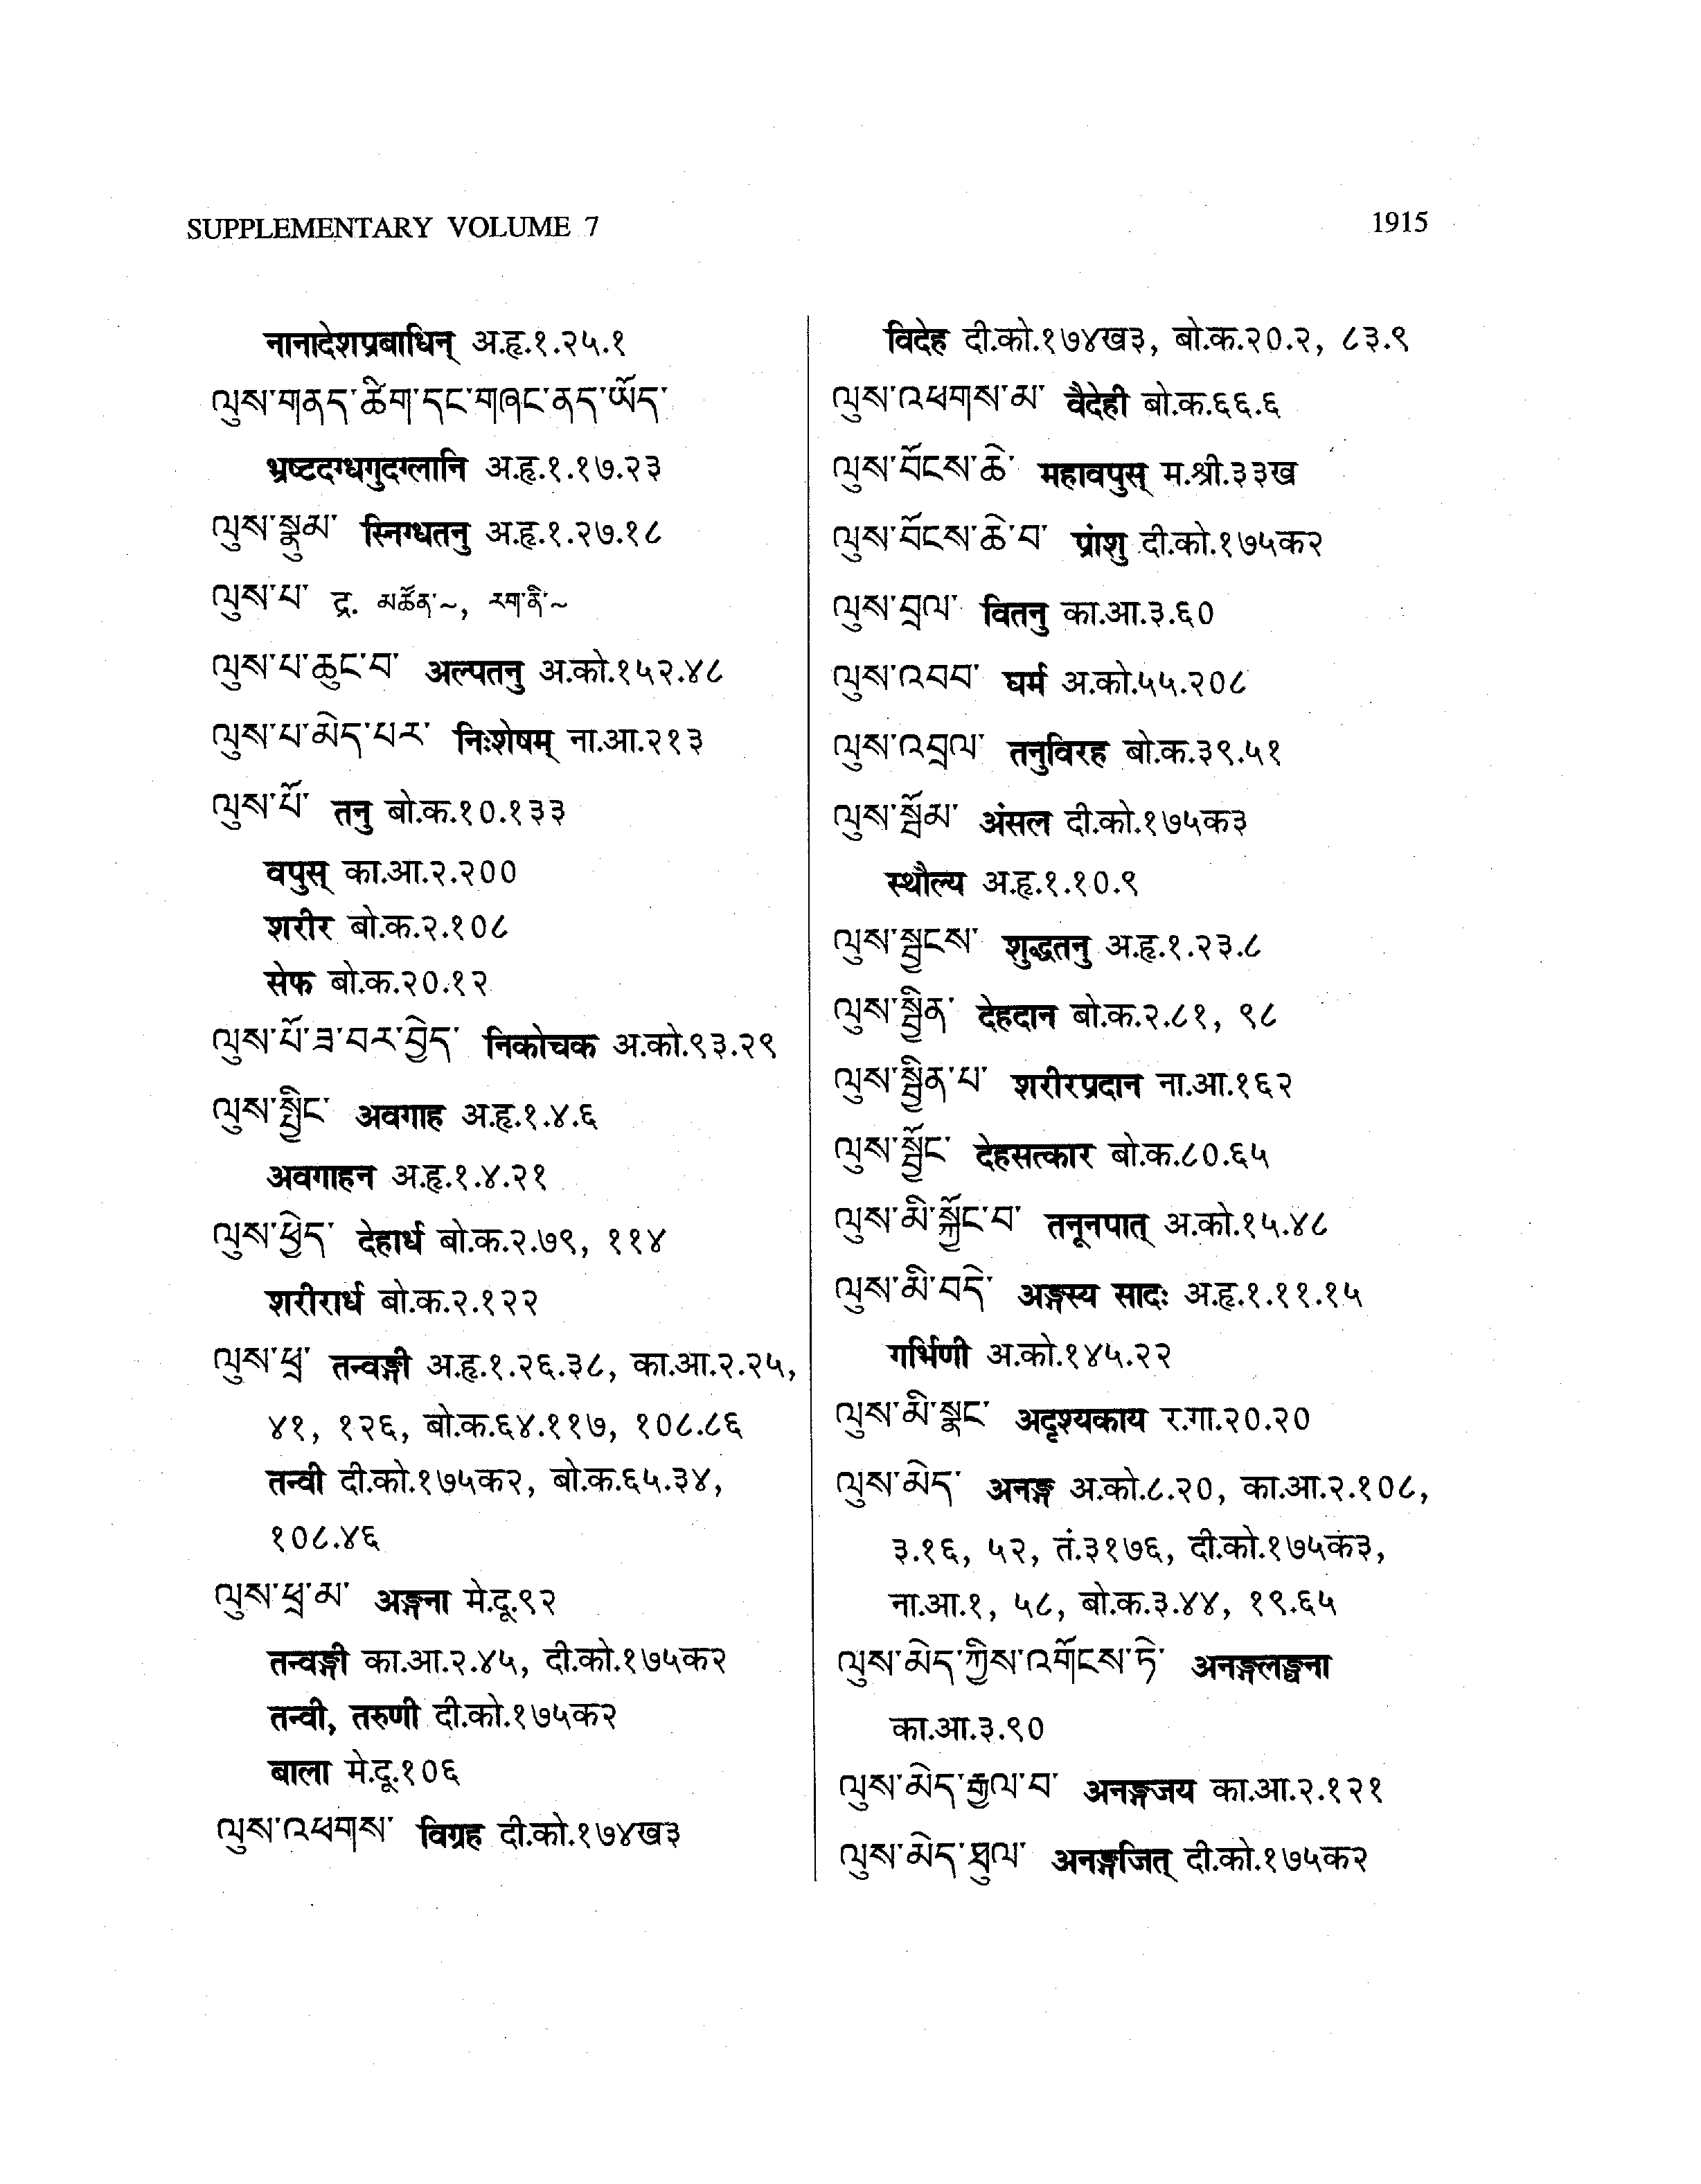 SUPPLEMENTARY VOLUME 7
1915
नानादेशप्रबाधिन् अ.हृ.१.२५.१
ལུས་གནད་ཚིག་དང་གཞང་ནད་ཡོད་
भ्रष्टदग्धगुदग्लानि अ.हृ.१.१७.२३
ལུས་སྣུམ་ स्निग्धतनु अ.हृ.१.२७.१८
ལུས་པ་ द्र. མཚོན་~, རག་ནི་~
ལུས་པ་ཆུང་བ་ अल्पतनु अ.को.१५२.४८
ལུས་པ་མེད་པར་ निःशेषम् ना.आ.२१३
ལུས་པོ་ तनु बो.क.१०.१३३
वपुस् का.आ.२.२००
शरीर बो.क.२.१०८
सेफ बो.क.२०.१२
ལུས་པོ་ཟ་བར་བྱེད་ निकोचक अ.को.९३.२९
ལུས་སྤྱིང་ अवगाह अ.हृ.१.४.६
अवगाहन अ.हृ.१.४.२१
ལུས་ཕྱེད་ देहार्ध बो.क.२.७९, ११४
शरीरार्ध बो.क.२.१२२
ལུས་ཕྲ་ तन्वङ्गी अ.हृ.१.२६.३८, का.आ.२.२५,
४१, १२६, बो.क.६४.११७, १०८.८६
तन्वी दी.को.१७५क२, बो.क.६५.३४,
१०८.४६
ལུས་ཕྲ་མ་ अङ्गना मे.दू.९२
तन्वङ्गी का.आ.२.४५, दी.को.१७५क२
तन्वी, तरुणी दी.को.१७५क२
बाला मे.दू.१०६
ལུས་འཕགས་ विग्रह दी.को.१७४ख३
विदेह दी.को.१७४ख३, बो.क.२०.२, ८३.९
ལུས་འཕགས་མ་ वैदेही बो.क.६६.६
ལུས་བོངས་ཆེ་ महावपुस् म.श्री.३३ख
ལུས་བོངས་ཆེ་བ་ प्रांशु दी.को.१७५क२
ལུས་བྲལ་ वितनु का.आ.३.६०
ལུས་འབབ་ घर्म अ.को.५५.२०८
ལུས་འབྲལ་ तनुविरह बो.क.३९.५१
ལུས་སྦོམ་ अंसल दी.को.१७५क३
स्थौल्य अ.हृ.१.१०.९
ལུས་སྦྱངས་ शुद्धतनु अ.हृ.१.२३.८
ལུས་སྦྱིན་ देहदान बो.क.२.८१, ९८
ལུས་སྦྱིན་པ་ शरीरप्रदान ना.आ.१६२
ལུས་སྦྱོང་ देहसत्कार बो.क.८०.६५
ལུས་མི་སྐྱོང་བ་ तनूनपात् अ.को.१५.४८
ལུས་མི་བདེ་ अङ्गस्य सादः अ.हृ.१.११.१५
गर्भिणी अ.को.१४५.२२
ལུས་མི་སྣང་ अदृश्यकाय र.गा.२०.२०
ལུས་མེད་ अनङ्ग अ.को.८.२०, का.आ.२.१०८,
३.१६, ५२, तं.३१७६, दी.को.१७५क३,
ना.आ.१, ५८, बो.क.३.४४, १९.६५
ལུས་མེད་ཀྱིས་འགོངས་ཏེ་ अनङ्गलङ्घना
का.आ.३.९०
ལུས་མེད་རྒྱལ་བ་ अनङ्गजय का.आ.२.१२१
ལུས་མེད་ཐུལ་ अनङ्गजित् दी.को.१७५क२